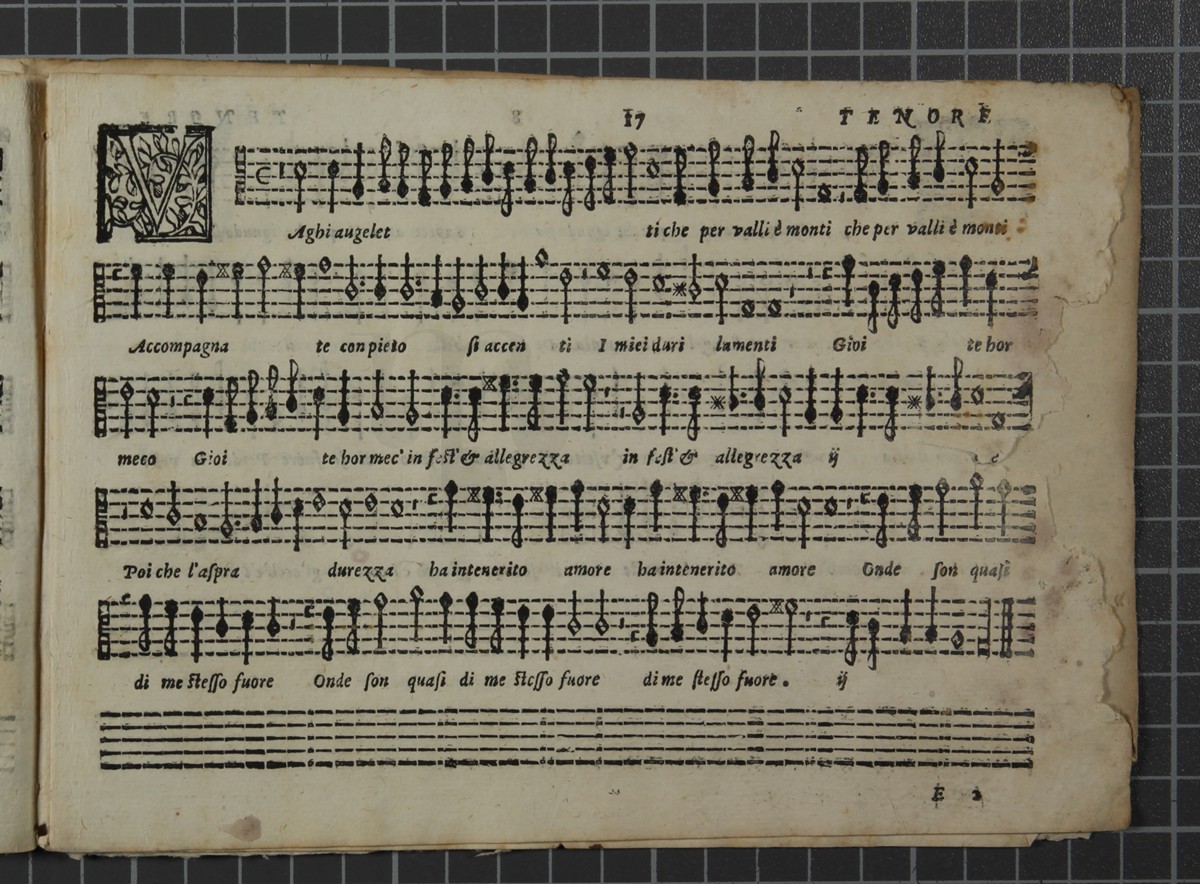 17 TENORE
VAghi augelet ti che per valli è monti che per valli è monti
Accompagna te con pieto si accen ti I miei duri lamenti Gioi te hor
meco Gioi te hor mec' in fest' & allegrezza in fest' & allegrezza ij
Poi che l'aspra durezza ha intenerito amore ha intenerito amore Onde son quasi
di me stesso fuore Onde son quasi di me stesso fuore di me stesso fuore. ij
E 2